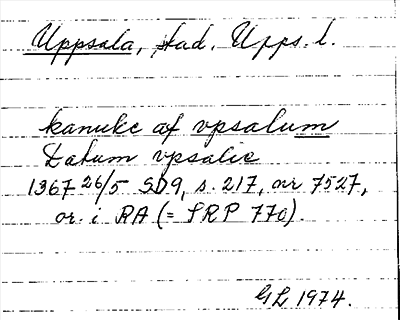 Uppsala, stad, Upps. l.
kanukc af vpsalum
Datum vpsalie
1367 26/5 SD9, s. 217, nr 7527,
or. i RA (= SRP 770).
GL 1974.